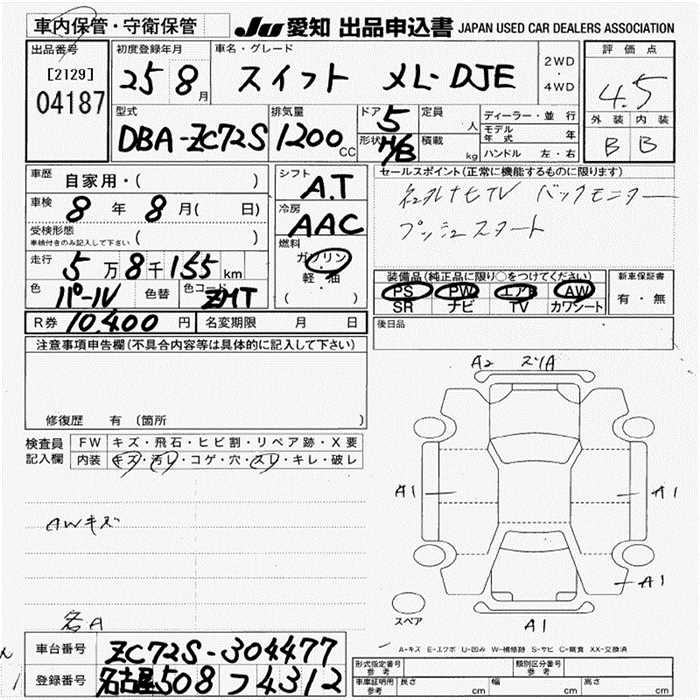 車内保管・守衛保管
JU 愛知 出品申込書 JAPAN USED CAR DEALERS ASSOCIATION
出品番号
[2129]
04187
初度登録年月
25 8月
車名・グレード
スイフト XL-DJE
2WD
・
4WD
評価点
4.5
外装 内装
B B
型式
DBA-ZC72S
排気量
1200cc
ドア 5
形状 H/B
定員 人
積載 kg
ディーラー・並行
モデル年式 年
ハンドル 左・右
車歴 自家用・( )
車検 8年 8月( 日)
受検形態
車検付きのみ記入して下さい ( )
走行 5万8千155km
色 パール 色替 色コード ZMT
R券 10,400円 名変期限 月 日
シフト
A.T
冷房
AAC
燃料
ガソリン
軽・油
( )
セールスポイント(正常に機能するものに限ります)
TV バックモニター
プッシュスタート
装備品(純正品に限り○をつけてください)
PS PW エアB AW
SR ナビ TV カワシート
新車保証書
有・無
後日品
注意事項申告欄(不具合内容等は具体的に記入して下さい)
修復歴 有 (箇所 )
検査員記入欄
FW キズ・飛石・ヒビ割・リペア跡・X要
内装 キズ・汚レ・コゲ・穴・スレ・キレ・破レ
AWキズ
各A
A2 スリA
A1
A1
A1
A1
スペア
A-キズ E-エクボ U-凹み W-補修跡 S-サビ C-腐食 XX-交換済
車台番号 ZC72S-304477
登録番号 名古屋508 つ4312
型式指定番号 参考
類別区分番号 参考
車庫証明用 参考 長さ cm 幅 cm 高さ cm